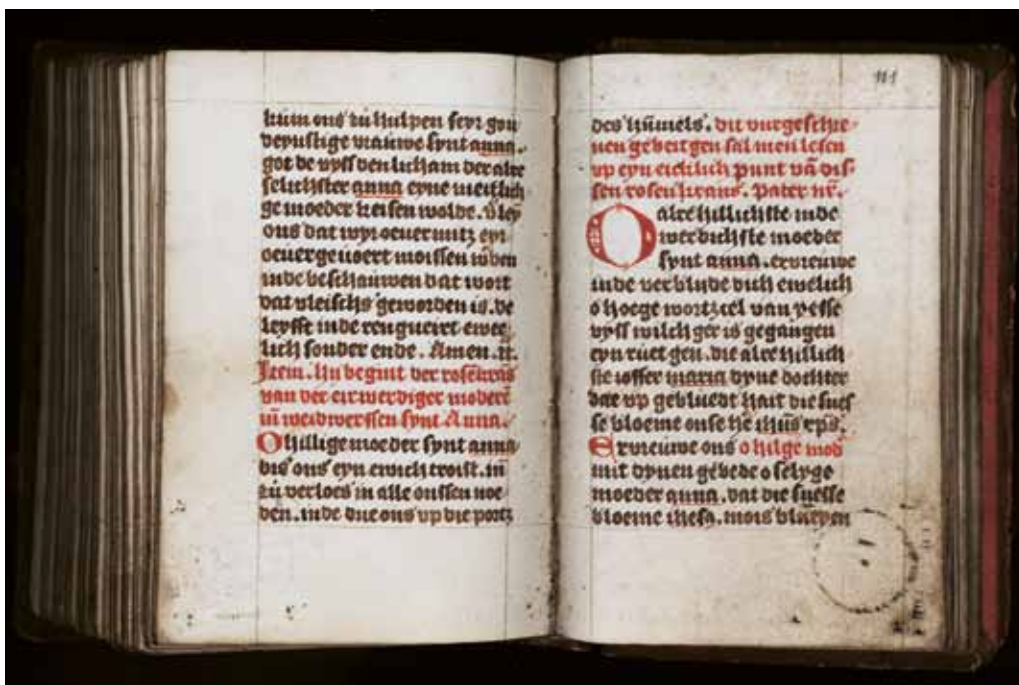 kum ons zu hulpen seyr gou
deynstige vrauwe synt anna.
got de vyss den licham der alre
selichster anna eyne meitlich
ge moeder keisen wolde. v̄ley
ons dat wyr oeuermitz eyr
oeuergeuoert moissen w̄den
inde beschauwen dat wort
dat vleischs geworden is. de
leyfft inde rengneirt ewee
lich sonder ende. Amen. 
Item. hy begint der rosēkrās
van der eirwerdiger moderē
synt Anna.
O hillige moeder synt anna
bis ons eyn ewich troist. in̄
zu verloes in alle onssen noe
den. inde due ons vp die portz
111
des hūmels. dit vurgeschre
uen gebeitgen sal men lesen
vp eyn eicklich punt vā dis
sen rosenkrans. Pater nr̄.
O alre hillichste inde
werdichste moeder
synt anna. ervreuwe
inde verblyde dich ewelich
o hoege wortzcel van yesse
vyss wilch ger is gegangen
eyn rūet gen. die alre hillich
ste ioffer maria dyne dochter
dae vp gebluedt hait die sues
se bloeme onse hē ihūs xp̄s.
Ervreuwe ons o hilge mod
mit dynen gebede o selyge
moeder anna. dat die suesse
bloeme ihesꝫ. mois blueyen